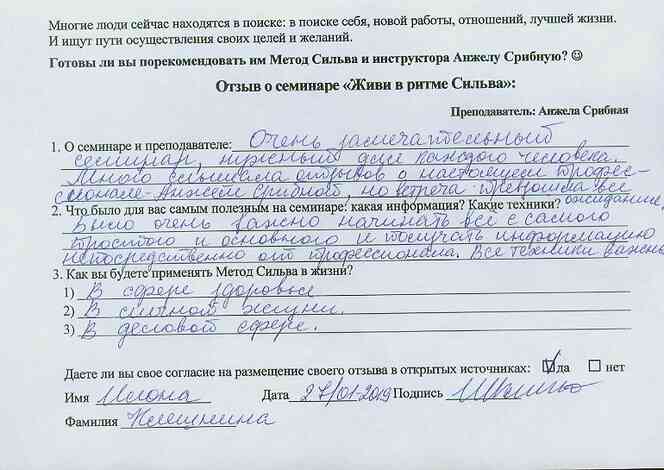 Многие люди сейчас находятся в поиске: в поиске себя, новой работы, отношений, лучшей жизни.
И ищут пути осуществления своих целей и желаний.
Готовы ли вы порекомендовать им Метод Сильва и инструктора Анжелу Срибную? ☺
Отзыв о семинаре «Живи в ритме Сильва»:
Преподаватель: Анжела Срибная
1. О семинаре и преподавателе: Очень замечательный
семинар, нужный для каждого человека.
Много слышала отзывов о настоящем профес-
сионале - Анжеле Срибной, но встреча превзошла все
2. Что было для вас самым полезным на семинаре: какая информация? Какие техники? ожидания
Было очень важно начинать все с самого
простого и основного и получать информацию
непосредственно от профессионала. Все техники важны
3. Как вы будете применять Метод Сильва в жизни?
1) В сфере здоровья
2) В личной жизни.
3) В деловой сфере.
Даете ли вы свое согласие на размещение своего отзыва в открытых источниках: ☑ да ☐ нет
Имя Илона Дата 27/01.2019 Подпись
Фамилия